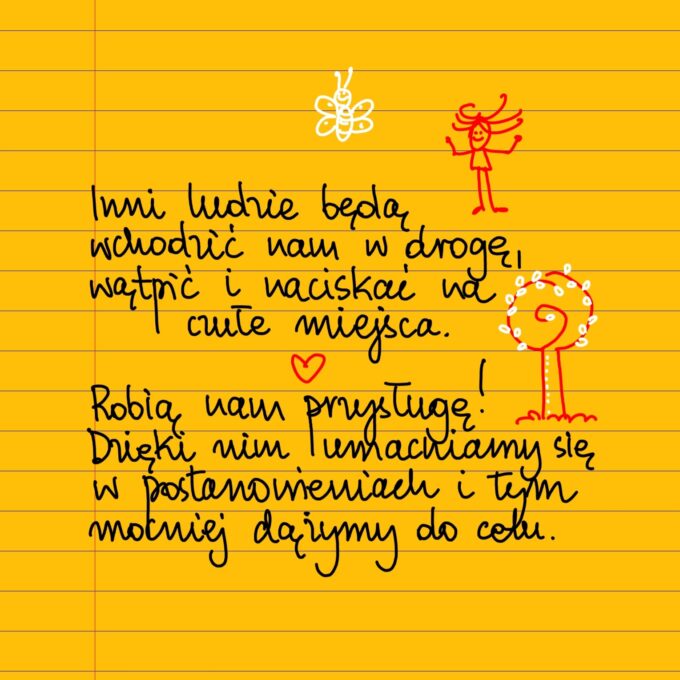 Inni ludzie będą
wchodzić nam w drogę,
wątpić i naciskać na
czułe miejsca.
Robią nam przysługę!
Dzięki nim umacniamy się
w postanowieniach i tym
mocniej dążymy do celu.